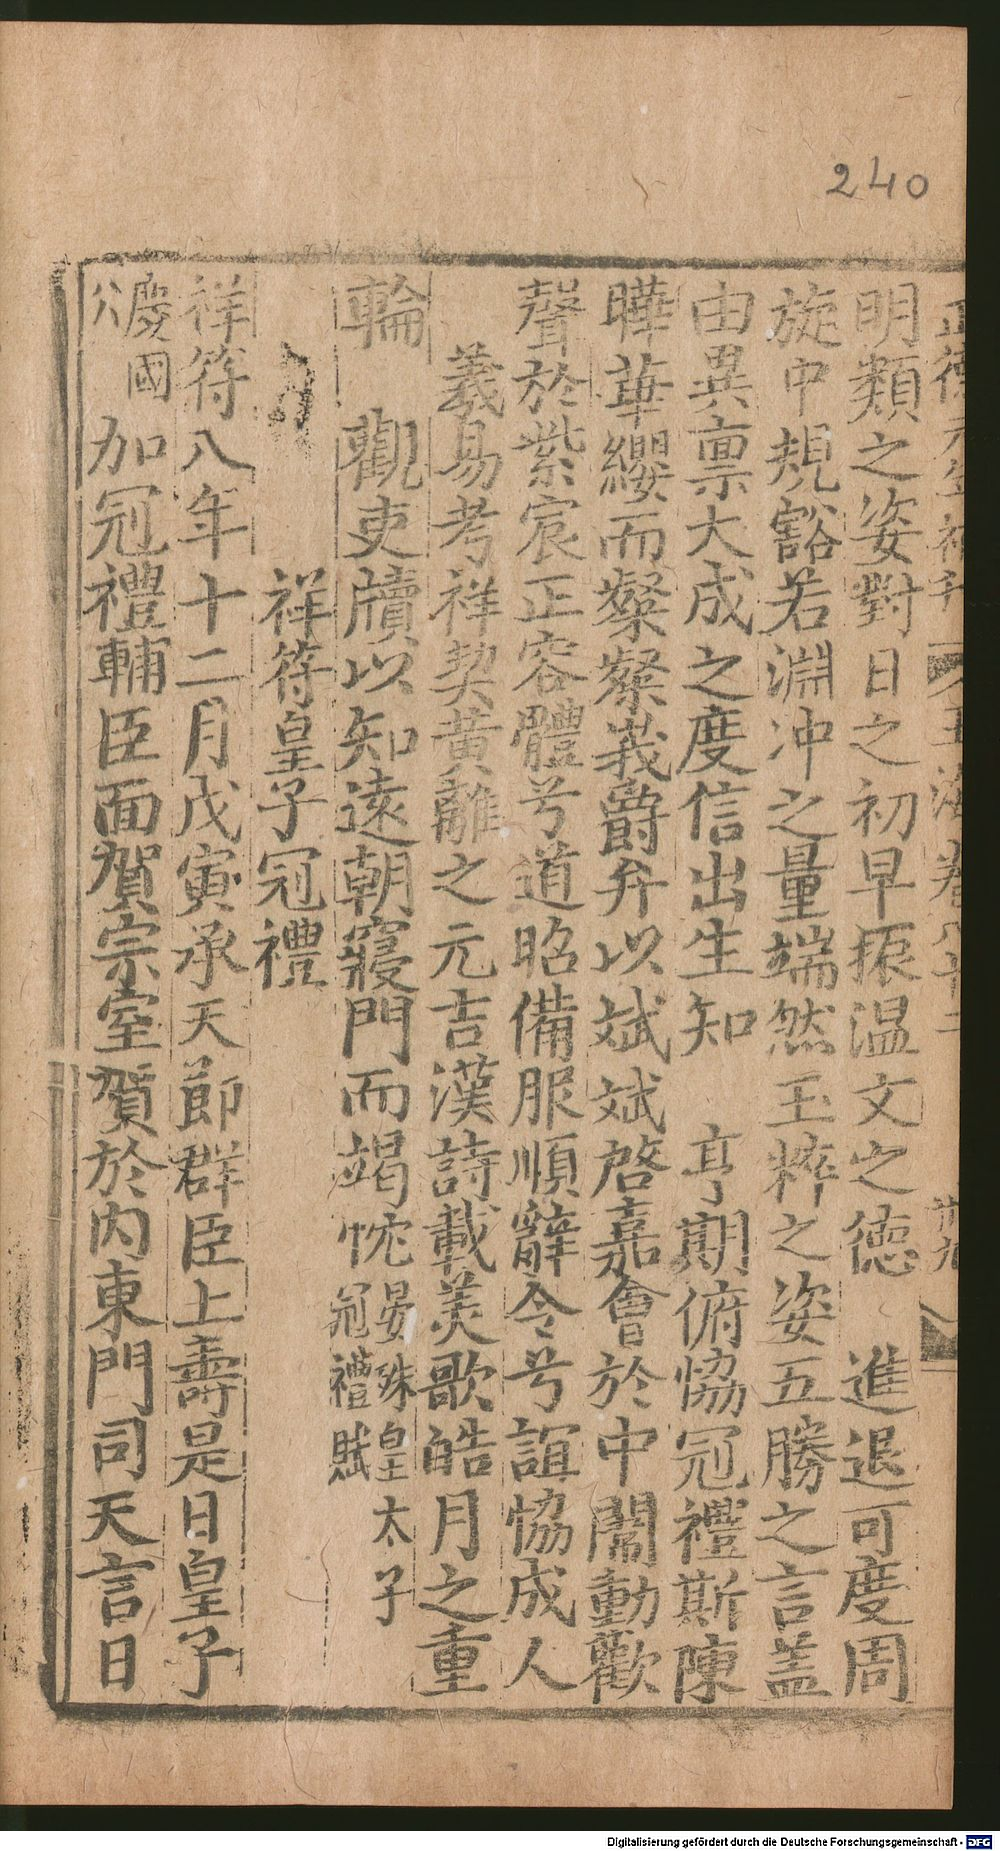 240
正德元年補刊 玉海卷八十二 廿九
明類之姿對日之初早振温文之德 進退可度周
旋中規豁若淵冲之量端然玉粹之姿五勝之言盖
由異禀大成之度信出生知 亨期俯恊冠禮斯陳
曄華纓而粲粲峩爵弁以斌斌啓嘉會於中闈動歡
聲於紫宸正容體兮道昭備服順辭令兮誼恊成人
羲易考祥契黄離之元吉漢詩載美歌皓月之重
輪 觀吏牘以知遠朝寢門而竭忱晏殊皇太子
冠禮賦
祥符皇子冠禮
祥符八年十二月戊寅承天節群臣上壽是日皇子
慶國
公 加冠禮輔臣面賀宗室賀於内東門司天言日
Digitalisierung gefördert durch die Deutsche Forschungsgemeinschaft - DFG